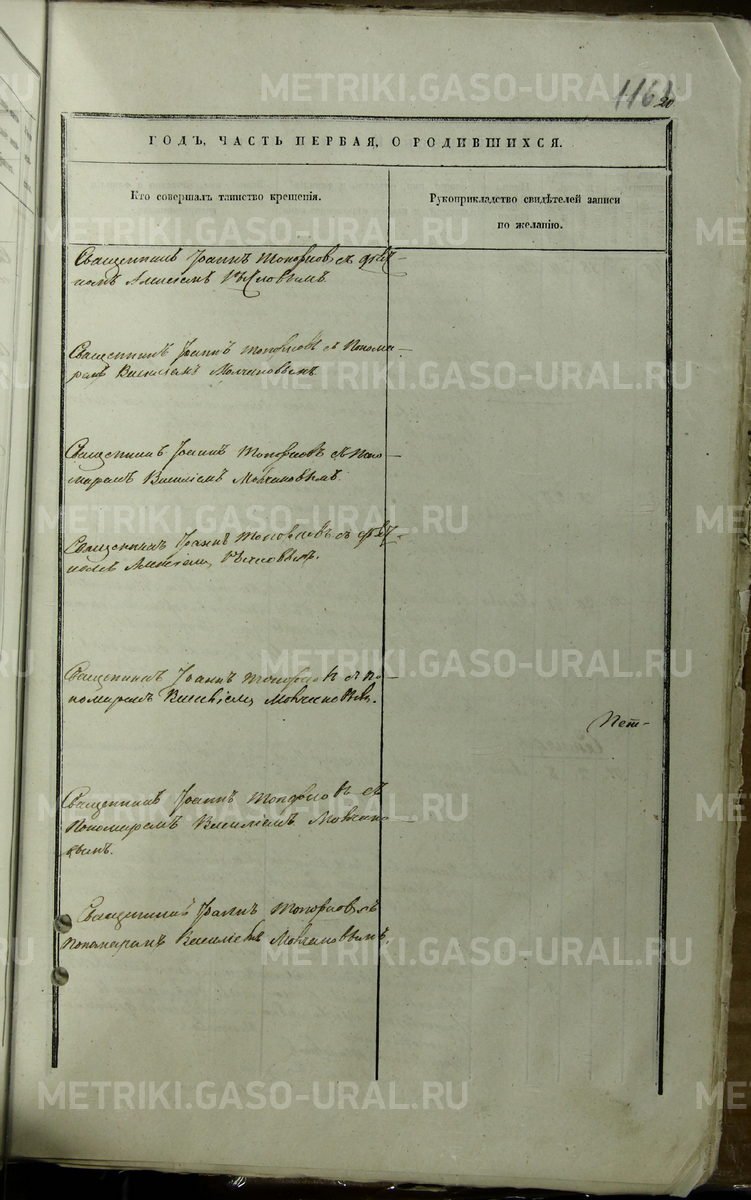 METRIKI.GASO-URAL.RU
1161 20
ГОДЪ, ЧАСТЬ ПЕРВАЯ, О РОДИВШИХСЯ.
Кто совершалъ таинство крещенія.
Рукоприкладство свидѣтелей записи
по желанію.
Священникъ Іоаннъ Топорковъ съ
Священникъ Іоаннъ Топорковъ съ Понома-
ремъ Василіемъ Молчановымъ.
Священникъ Іоаннъ Топорковъ съ Поно-
маремъ Василіемъ Молчановымъ.
Священникъ Іоаннъ Топорковъ съ
Священникъ Іоаннъ Топорковъ съ По-
номаремъ Василіемъ Молчановымъ.
Священникъ Іоаннъ Топорковъ съ
Пономаремъ Василіемъ Молчано-
вымъ.
Священникъ Іоаннъ Топорковъ съ
Пономаремъ Василіемъ Молчановымъ.